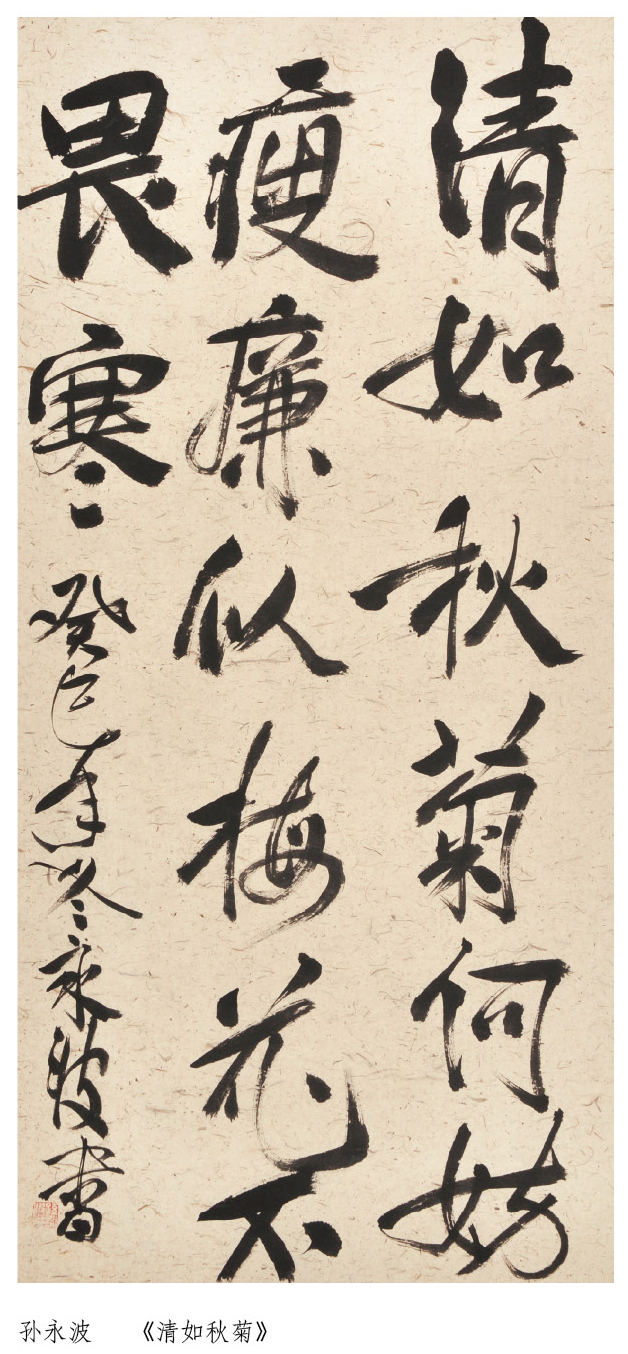 清如秋菊何妨
瘦廉似梅花不
畏寒 癸巳年冬永波书
孙永波 《清如秋菊》